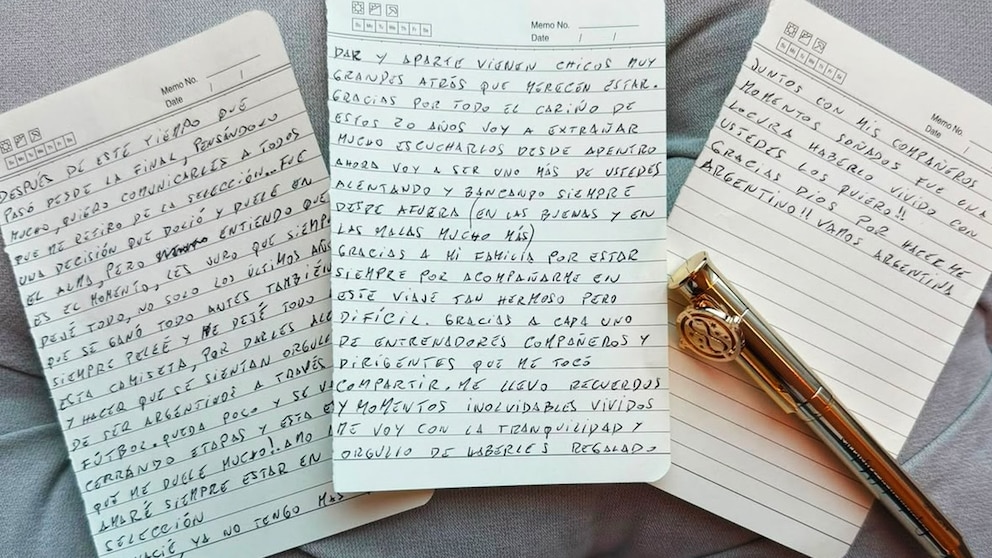 Memo No.
Date / /
Su Mo Tu We Th Fr Sa
DESPUÉS DE ESTE TIEMPO QUE
PASÓ DESDE LA FINAL, PENSÁNDOLO
MUCHO, QUIERO COMUNICARLES A TODOS
QUE ME RETIRO DE LA SELECCIÓN... FUE
UNA DECISIÓN QUE DOLIÓ Y DUELE EN
EL ALMA, PERO ENTIENDO QUE
ES EL MOMENTO, LES JURO QUE SIEMPRE
DEJÉ TODO, NO SOLO LOS ÚLTIMOS AÑOS
QUE SE GANÓ TODO ANTES TAMBIÉN
SIEMPRE PELEÉ Y ME DEJÉ TODO
ESTA CAMISETA, POR DARLES
Y HACER QUE SE SIENTAN
DE SER ARGENTINOS A TRAVÉS
FÚTBOL. QUEDA POCO Y SE
CERRANDO ETAPAS Y ESTA
QUÉ ME DUELE MUCHO!! AMO
AMARÉ SIEMPRE ESTAR EN
SELECCIÓN
YA NO TENGO MÁS
Memo No.
Date / /
Su Mo Tu We Th Fr Sa
DAR Y APARTE VIENEN CHICOS MUY
GRANDES ATRÁS QUE MERECEN ESTAR.
GRACIAS POR TODO EL CARIÑO DE
ESTOS 20 AÑOS VOY A EXTRAÑAR
MUCHO ESCUCHARLOS DESDE ADENTRO
AHORA VOY A SER UNO MÁS DE USTEDES
ALENTANDO Y BANCANDO SIEMPRE
DESDE AFUERA (EN LAS BUENAS Y EN
LAS MALAS MUCHO MÁS)
GRACIAS A MI FAMILIA POR ESTAR
SIEMPRE POR ACOMPAÑARME EN
ESTE VIAJE TAN HERMOSO PERO
DIFÍCIL. GRACIAS A CADA UNO
DE ENTRENADORES COMPAÑEROS Y
DIRIGENTES QUE ME TOCÓ
COMPARTIR. ME LLEVO RECUERDOS
Y MOMENTOS INOLVIDABLES VIVIDOS
ME VOY CON LA TRANQUILIDAD Y
ORGULLO DE HABERLES REGALADO
Memo No.
Date / /
Su Mo Tu We Th Fr Sa
JUNTOS CON MIS COMPAÑEROS
MOMENTOS SOÑADOS FUE UNA
LOCURA HABERLO VIVIDO CON
USTEDES LOS QUIERO!!
GRACIAS DIOS POR HACERME
ARGENTINO!! VAMOS ARGENTINA